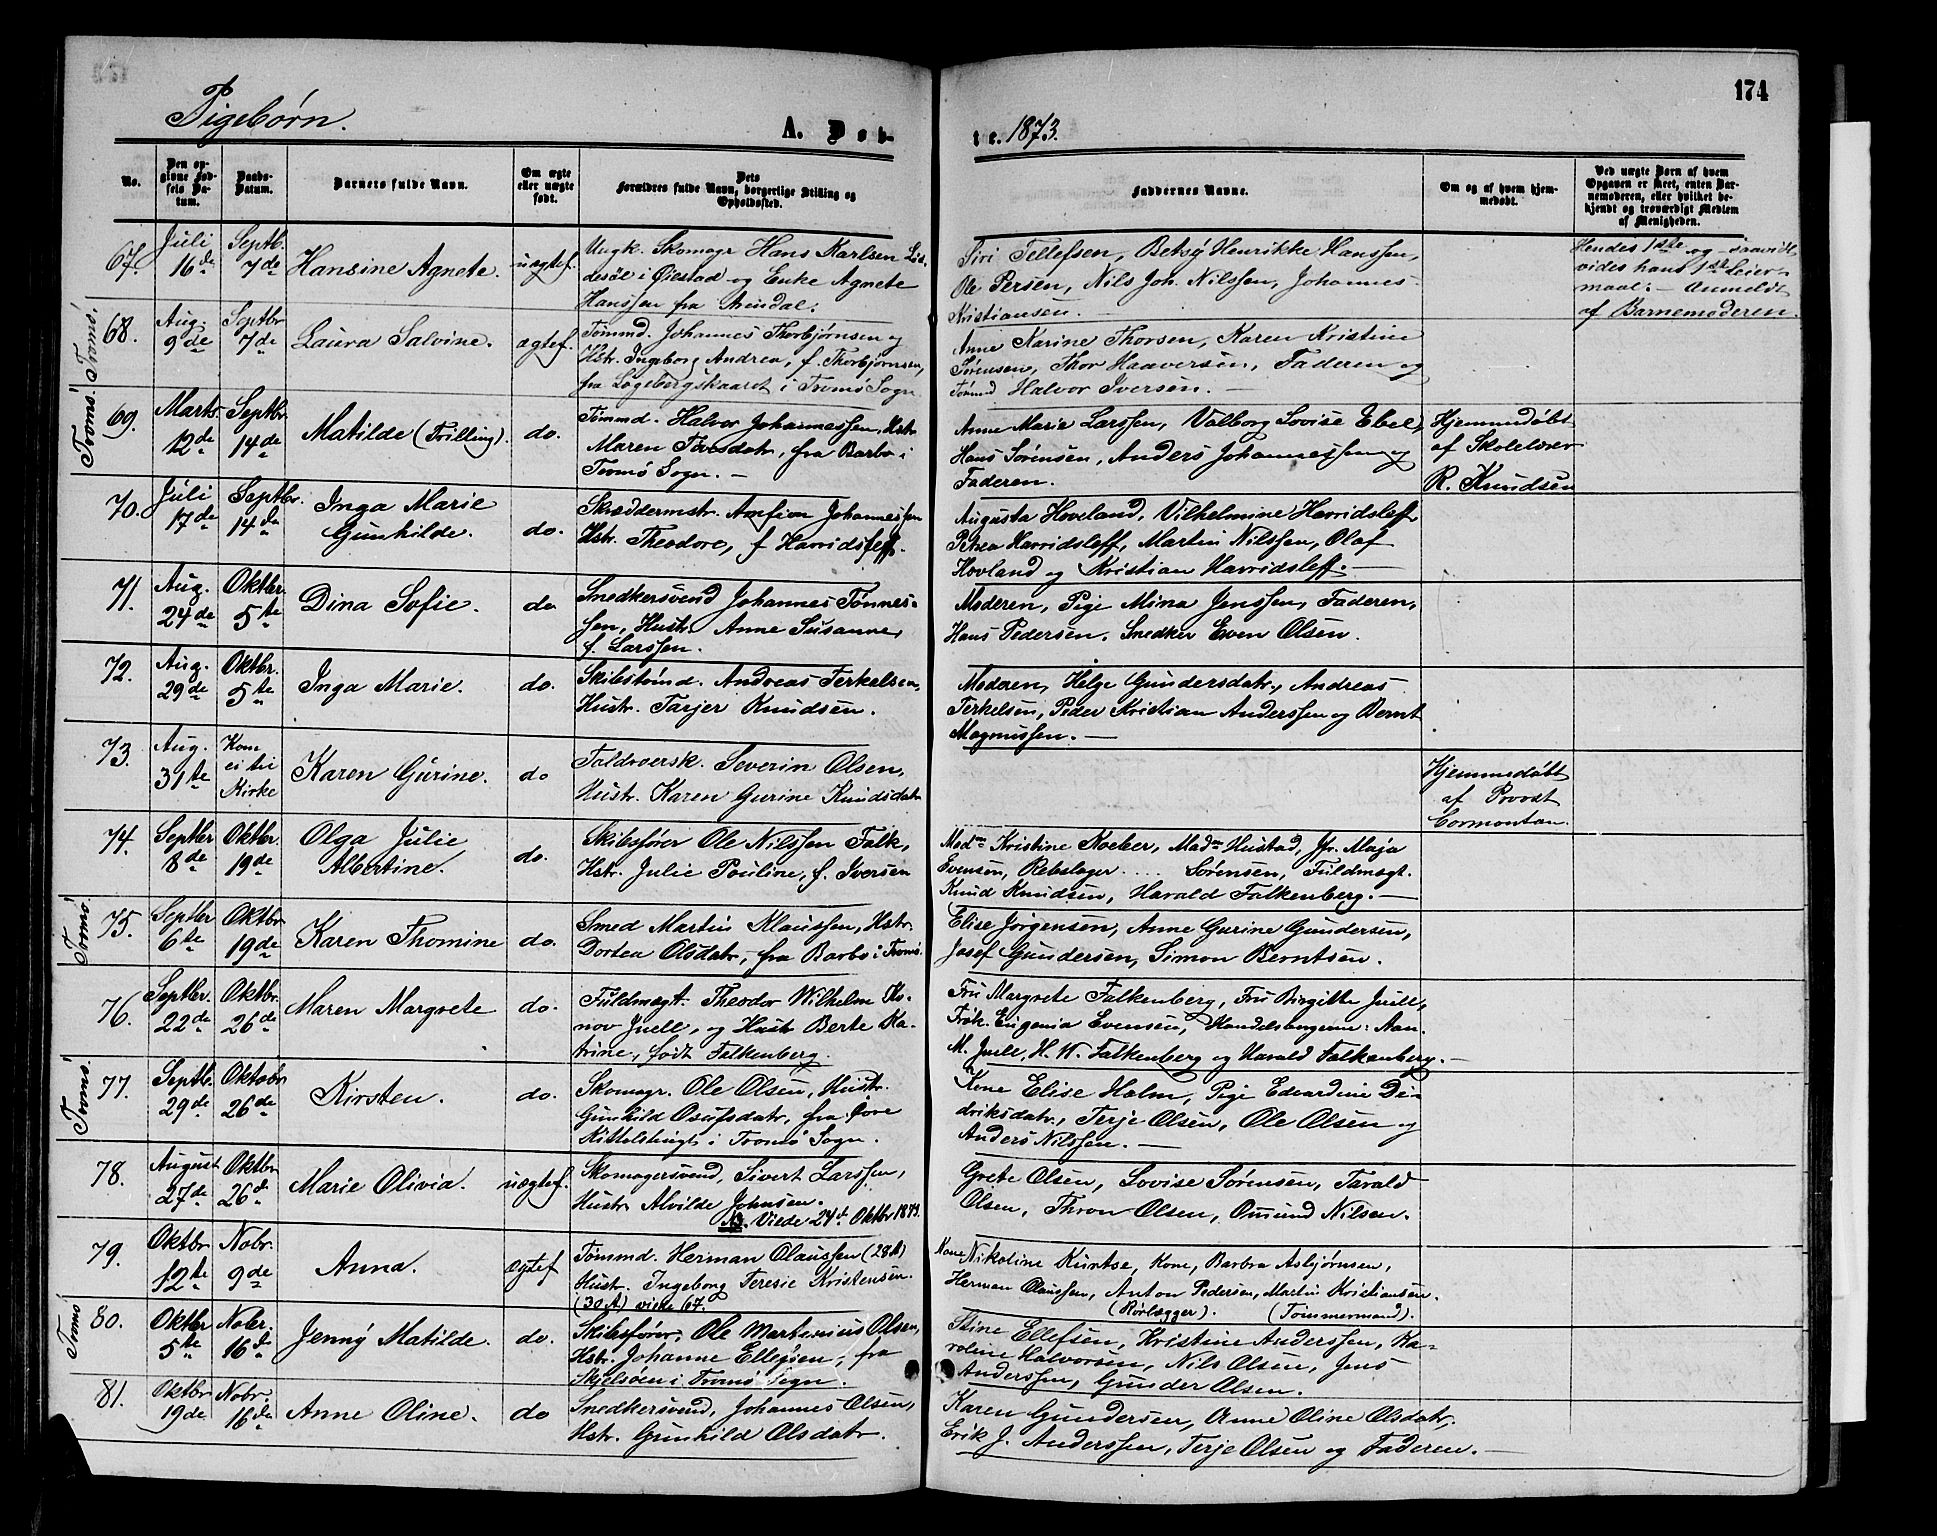 174
Pigebørn.
A. Døb-
te. 1873.
No.
Den op-
givne Fød-
sels Da-
tum.
Daabs-
Datum.
Barnets fulde Navn.
Om ægte
eller uægte
født.
Dets
Forældres fulde Navn, borgerlige Stilling og
Opholdssted.
Faddernes Navne.
Om og af hvem hjem-
medøbt.
Ved uægte Børn af hvem
Opgaven er skeet, enten Bar-
nemoderen, eller hvilket be-
kjendt og troværdigt Medlem
af Menigheden.
67.
Juli
16de
Septb.
7de
Hansine Agnete.
uægtef.
Ungk. Skomagr Hans Karlsen
i Øiestad og Enke Agnete
Hanssen fra Arendal.
Siri Tellefsen, Betsy Henrikke Hanssen,
Ole Persen, Nils Joh. Nilssen, Johannes
Kristiansen.
Hendes 1ste og saavidt
vides hans 1ste Leier-
maal. - Anmeldt
af Barnemoderen.
Tromø.
68.
Aug.
9de
Septbr
7de
Laura Salvine.
ægtef.
Tømmd. Johannes Thorbjørnsen og
Hstr. Ingeborg Andrea, f. Thorbjørnsen,
fra Løgebergskaaret i Tromø Sogn
Anne Karine Thorsen, Karen Kristine
Sørensen, Thor Haaversen, Faderen og
Tømmd Halvor Iversen. -
Tromø.
69.
Marts
12de
Septbr
14de
Matilde (Trilling).
do.
Tømmd. Halvor Johannessen, Hstr
Maren Taresdatr, fra Barbo i
Tromø Sogn. -
Anne Marie Larssen, Valborg Lovise Ebel,
Hans Sørensen, Anders Johannessen og
Faderen.
Hjemmedøbt
af Skolelærer
R. Knudsen
70.
Juli
17de
Septbr.
14de
Inga Marie
Gunhilde.
do.
Skræddermstr. Amfion Johannessen
Hstr. Theodore, f Harridsleff.
Augusta Hoveland, Vilhelmine Harridsleff
Petrea Harridsleff, Martin Nilssen, Olaf
Hovland og Kristian Harridsleff. -
71.
Aug.
24de
Oktbr.
5te
Dina Sofie.
do
Snedkersvend Johannes Tønnes-
sen, Hustr. Anne Susanne,
f. Larssen.
Moderen, Pige Mina Jenssen, Faderen,
Hans Pedersen, Snedker Even Olsen.
72.
Aug.
29de
Oktbr.
5te
Inga Marie.
do.
Skibstømd. Andreas Terkelsen,
Hustr. Tarjer Knudsen.
Moderen, Helge Gundersdatr., Andreas
Terkelsen, Peder Kristian Anderssen og Bernt
Magnussen. -
73.
Aug.
31te
Kom
ei til
Kirke
Karen Gurine.
do
Toldroersk. Severin Olsen,
Hustr. Karen Gurine Knudsdatr
Hjemmedøbt
af Provst
Cormontan.
74.
Septbr
8de
Oktbr.
19de
Olga Julie
Albertine.
do.
Skibsfører Ole Nilssen Falk,
Hstr. Julie Pouline, f. Iversen
Mdm Kristine Kocher, Madm Hustad, Jfr. Maja
Evensen, Rebslager .... Sørensen, Fuldmægt.
Knud Knudsen, Harald Falkenberg. -
Tromø.
75.
Septbr
6te
Oktbr
19de
Karen Thomine
do.
Smed Martin Klaussen, Hstr.
Dortea Olsdatr, fra Barbo i Tromø.
Elise Jørgensen, Anne Gurine Gundersen,
Josef Gundersen, Simon Berntsen.
76.
Septbr.
22de
Oktbr.
26de
Maren Margrete
do.
Fuldmægt. Theodor Wilhelm Ko-
nov Juell, og Hustr Berte Ka-
trine, født Falkenberg.
Fru Margrete Falkenberg, Fru Birgitte Juell,
Frøk. Eugenia Evensen, Handelsborgerne: Aan.
M. Juell, H. W. Falkenberg og Harald Falkenberg. -
Tromø.
77.
Septb.
29de
Oktobr
26de
Kirsten.
do.
Skomagr. Ole Olsen, Hustr.
Gunhild Osufsdatr, fra Gove
Kittelsbugt i Tromø Sogn.
Kone Elise Holm, Pige Edvardine Di-
driksdatr., Terje Olsen, Ole Olsen og
Anders Nilssen. -
78.
August
27de
Oktbr
26de
Marie Olivia.
uægtef.
Skomagersvend, Sivert Larssen,
Hustr. Alvilde Johnsen.
NB. Viede 24de Oktbr 1873.
Grete Olsen, Lovise Sørensen, Tarald
Olsen, Thron Olsen, Omund Nilsen.
79.
Oktbr
12te
Nobr.
9de
Anna.
ægtef
Tømmd. Herman Olaussen (28 A)
Hustr. Ingeborg Teresie Kristensen.
(30 A) viede 67.
Kone Nikoline Kuntse, Kone, Barbra Asbjørnsen,
Herman Claussen, Anton Pedersen, Martin Kristiansen.
(Rørlægger). (Tømmermand).
Tromø
80.
Oktbr
5te
Nobr.
16de
Jenny Matilde.
do.
Skibsfører, Ole Martinius Olsen,
Hstr. Johanne Ellefsen, fra
Skjelsøen i Tromø Sogn.
Stine Ellefsen, Kristine Anderssen, Ka-
roline Halvorsen, Nils Olsen, Jens
Anderssen, Gunder Olsen.
81.
Oktbr
19de
Nobr.
16de
Anne Oline.
do
Snedkersvend, Johannes Olsen,
Hstr. Gunhild Olsdatr.
Karen Gundersen, Anne Oline Olsdatr,
Erik J. Anderssen, Terje Olsen og Faderen. -